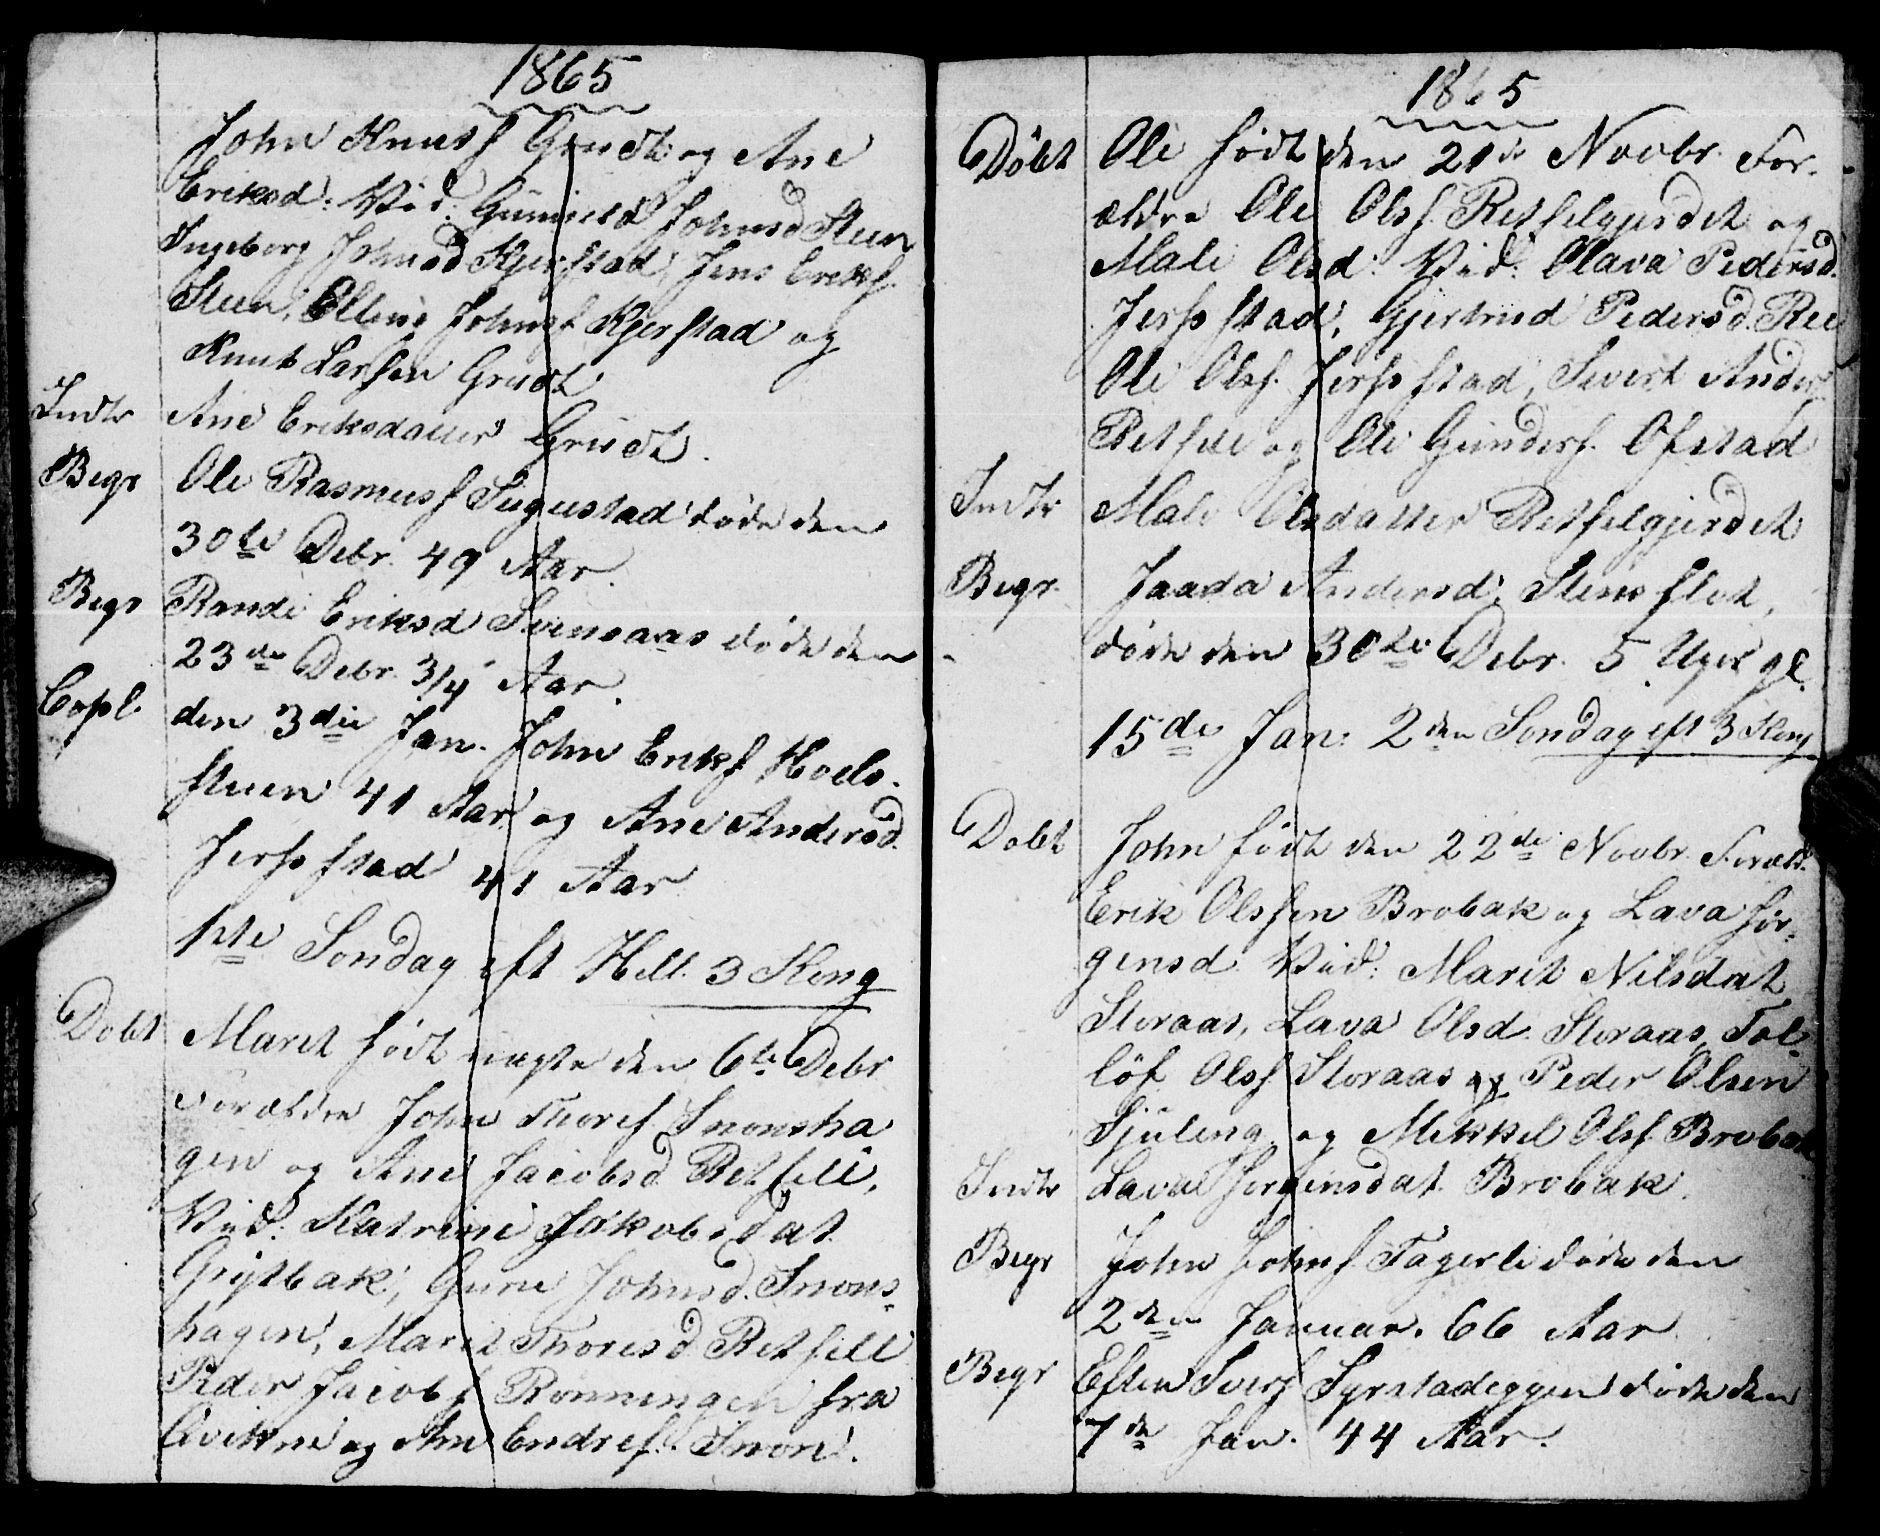 1865
John Knutsf Grudt og Ane
Eriksd: Vid: Gunnild Johnsd Steen
Ingeborg Johnsd Kjerstad, Jens Eriksf.
Steen, Elling Johnsf Kjerstad og
Knut Larsen Grudt
Indtr Ane Eriksdatter Grudt.
Begr Ole Rasmusf Sugustad døde den
30te Debr. 49 Aar.
Begr Randi Eriksd Svensaas døde den
23de Debr. 3/4 Aar.
Copl. den 3die Jan. John Eriksf Hoels-
stuen 41 Aar og Ane Andersd.
Jerpstad 41 Aar
1ste Søndag eft Hell. 3 Kong
Døbt Maret født den 6te Debr
Forældre John Toresf Snoensha
gen og Ane Jacobsd Retfell,
Vid: Katrine Jakobsdat
Grytbak, Gure Johnsd. Snoens-
hagen, Maret Thoresd Retfell
Peder Jacobsf Rønningen fra
Qvikne og Endresf. Snoen.
1865
Døbt Ole født den 21de Novbr. For-
ældre Ole Olsf. Retfelgjerdet og
Mali Olsd: Vid: Olava Pedersd.
Jerpstad, Gjertrud Pedersd. Ree
Ole Olsf. Jerpstad, Sivert Anders
Retfell og Ole Gundersf. Ofstad
Indtr Mali Olsdatter Retfelgjerdet
Begr. Andersd: Stensflet,
døde den 30te Debr. 5 Uger gl.
15de Jan: 2den Søndag eft 3 Kong
Døbt John født den 22de Novbr. Foræld.
Erik Olssen Brobak og Lava Jør-
gensd. Vid: Marit Nilsdat
Storaas, Lava Olsd. Storaas, Tol-
løf Olsf Storaas og Peder Olsen
Sjuleng, og Mikkel Olsf. Brobak
Indtr Lava Jørgensdat. Brobak.
Begr John Johnsf Fagerli døde den
2den Januar. 66 Aar
Begr Esten Siversf Syrstadeggen døde den
7de Jan. 44 Aar.